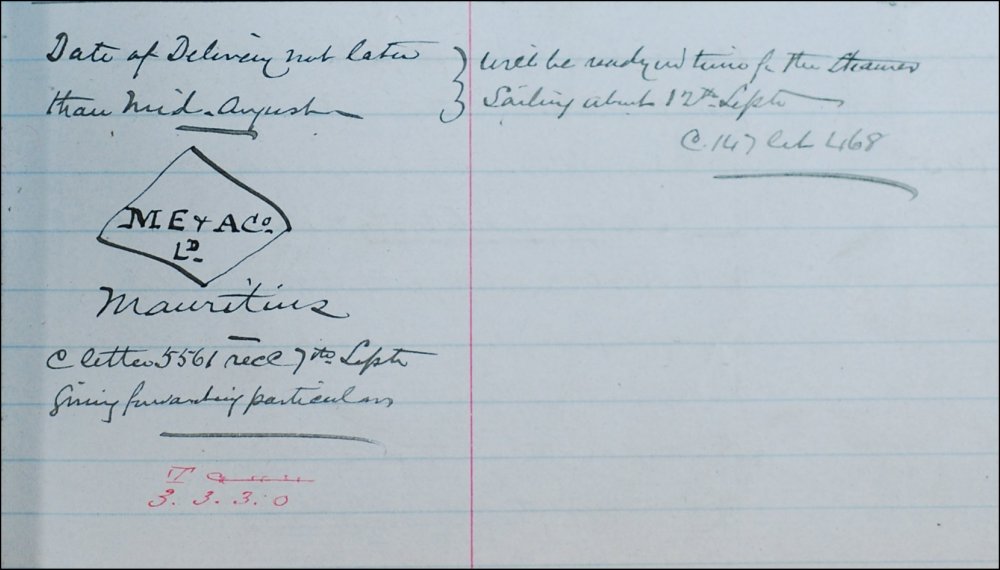 Date of Delivery not later
than Mid-August
M E & A Co.
LD.
Mauritius
C letter 5561 recd 7th Septr
giving forwarding particulars
T
3. 3. 3. 0
Will be ready in time for the steamer
Sailing about 12th Septr
C. 147 let 468